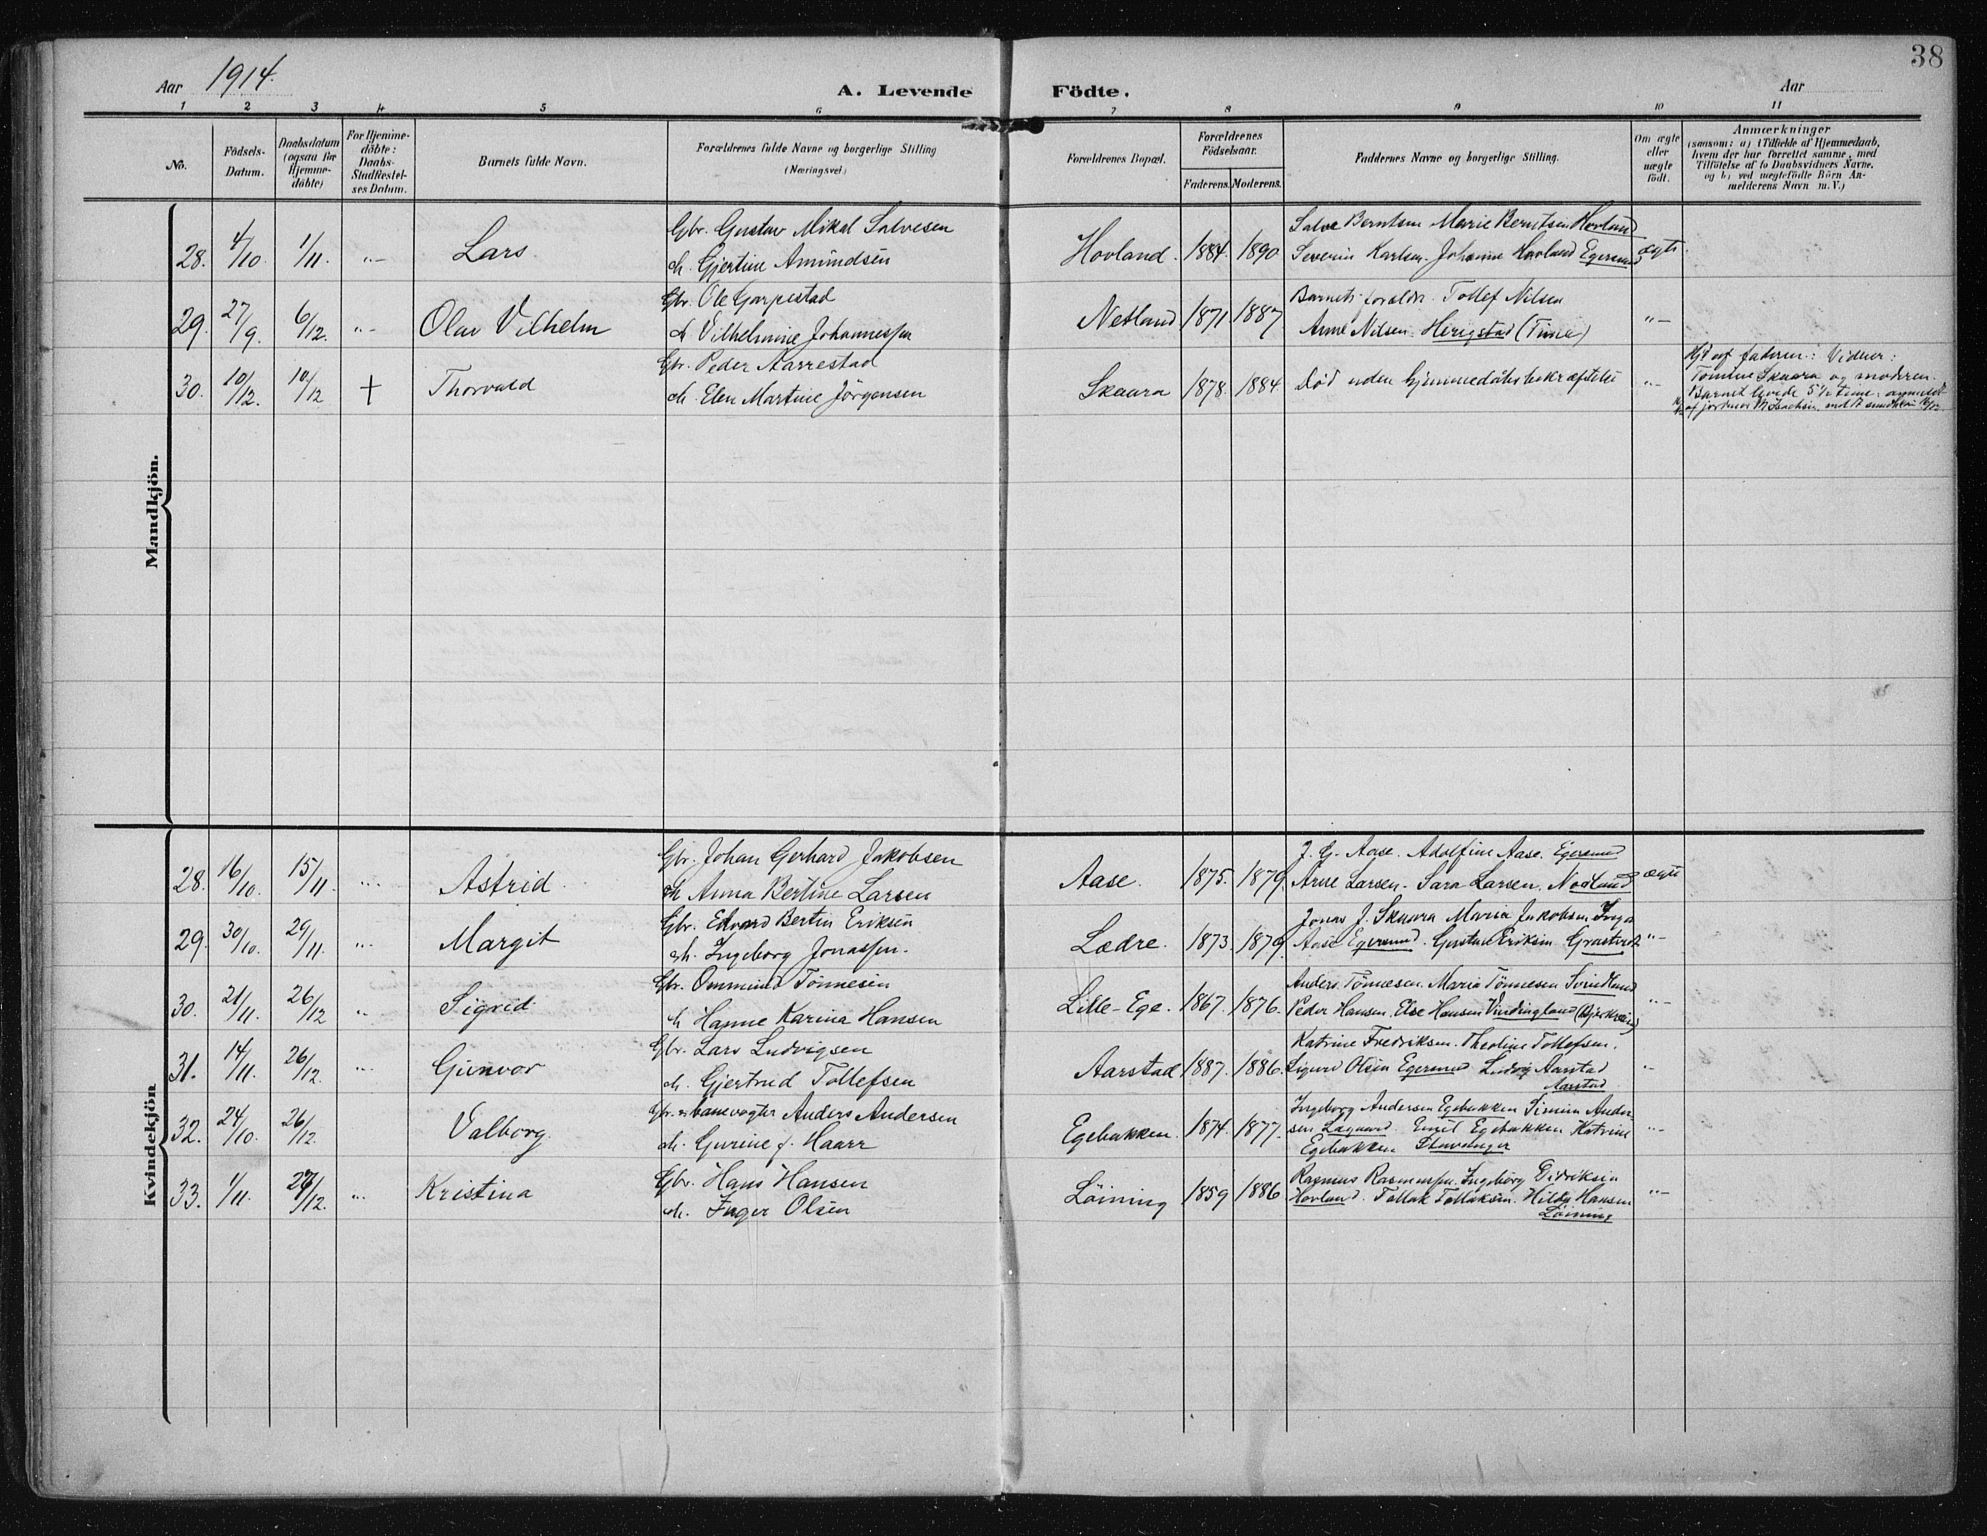 38
Aar 1914.
A. Levende Födte.
Aar
1 2 3 4 5 6 7 8 9 10 11
No.
Födsels-
Datum.
Daabsdatum
(ogsaa for
Hjemme-
döbte)
For Hjemme-
döbte:
Daabs-
Stadfæstel-
ses Datum.
Barnets fulde Navn.
Forældrenes fulde Navne og borgerlige Stilling
(Næringsvei)
Forældrenes Bopæl.
Forældrenes
Födselsaar.
Faderens. Moderens.
Faddernes Navne og borgerlige Stilling.
Om ægte
eller
uægte
födt.
Anmærkninger
(saasom: a) i Tilfælde af Hjemmedaab,
hvem der har forrettet samme, med
Tilföielse af to Daabsvidners Navne,
og b) ved uægtefödte Börn An-
melderens Navn m. V.)
Mandkjön.
28. 4/10. 1/11. "- Lars
Gbr. Gustav Mikal Salvesen
h. Gjertine Amundsen
Hovland. 1884. 1890
Salve Berntsen Marie Berntsen Hovland
Severin Karlsen. Johanne Hovland Egersund
ægte.
29. 27/9. 6/12. "- Olav Vilhelm
Gbr. Ole Garpestad
h. Vilhelmine Johannessen
Netland 1871 1887
Barnets foreldr. Tollef Nilsen
Anne Nilsen. Herigstad (Time)
"-
30. 10/12. 10/12 + Thorvald
Gbr. Peder Aarrestad
h. Elen Martine Jörgensen
Skaara 1878. 1884
Död uden hjemmedåbsbekræftelse
"-
Hjd af faderen: Vidner:
Tomine Skaara og moderen.
Barnet levede 5 1/2 time. anmeldt
af jordmor
Kvindekjön
28. 16/10. 15/11. "- Astrid
Gbr. Johan Gerhard Jakobsen
h. Anna Bertine Larsen
Aase. 1875. 1879.
J. G. Aase. Adolfine Aase. Egersund
Arne Larsen. Sara Larsen. Nodland
ægte
29. 30/10. 29/11. "- Margit
Gbr. Edvard Bertin Eriksen
h. Ingeborg Jonassen.
Lædre. 1873. 1879.
Jonas J. Skaara Maria Jakobsen Inga
Aase Egersund. Gustav Eriksen
"-
30. 21/11. 26/12 " Sigrid
Gbr. Ommund Tönnesen
h Hanne Karina Hansen
Lille-Ege. 1867. 1876.
Anders Tönnesen. Maria Tönnesen Svindland
Peder Hansen. Else Hansen Vindingland (Bjerkreim)
"-
31. 14/11. 26/12. "- Gunvor
Gbr. Lars Ludvigsen
h. Gjertrud Tollefsen
Aarstad 1887. 1886.
Katrine Fredriksen. Theoline Tollefsen.
Sigurd Olsen Egersund Ludvig Aarstad
Aarstad
"-
32. 24/10. 26/12. Valborg.
Gbr. & banevogter Anders Andersen
h. Gurine f. Haarr
Egebakken. 1874. 1877.
Ingeborg Andersen Egebakken Simon Ander-
sen Lagaard. Emil Egebakken Katrine
Egebakken Stavanger
"-
33. 1/11. 27/12. "- Kristina
Gbr. Hans Hansen
h. Inger Olsen
Löining 1859 1886
Rasmus Rasmussen. Ingeborg Didriksen
Hovland. Tollak Tollaksen. Hilda Hansen
Löining
"-